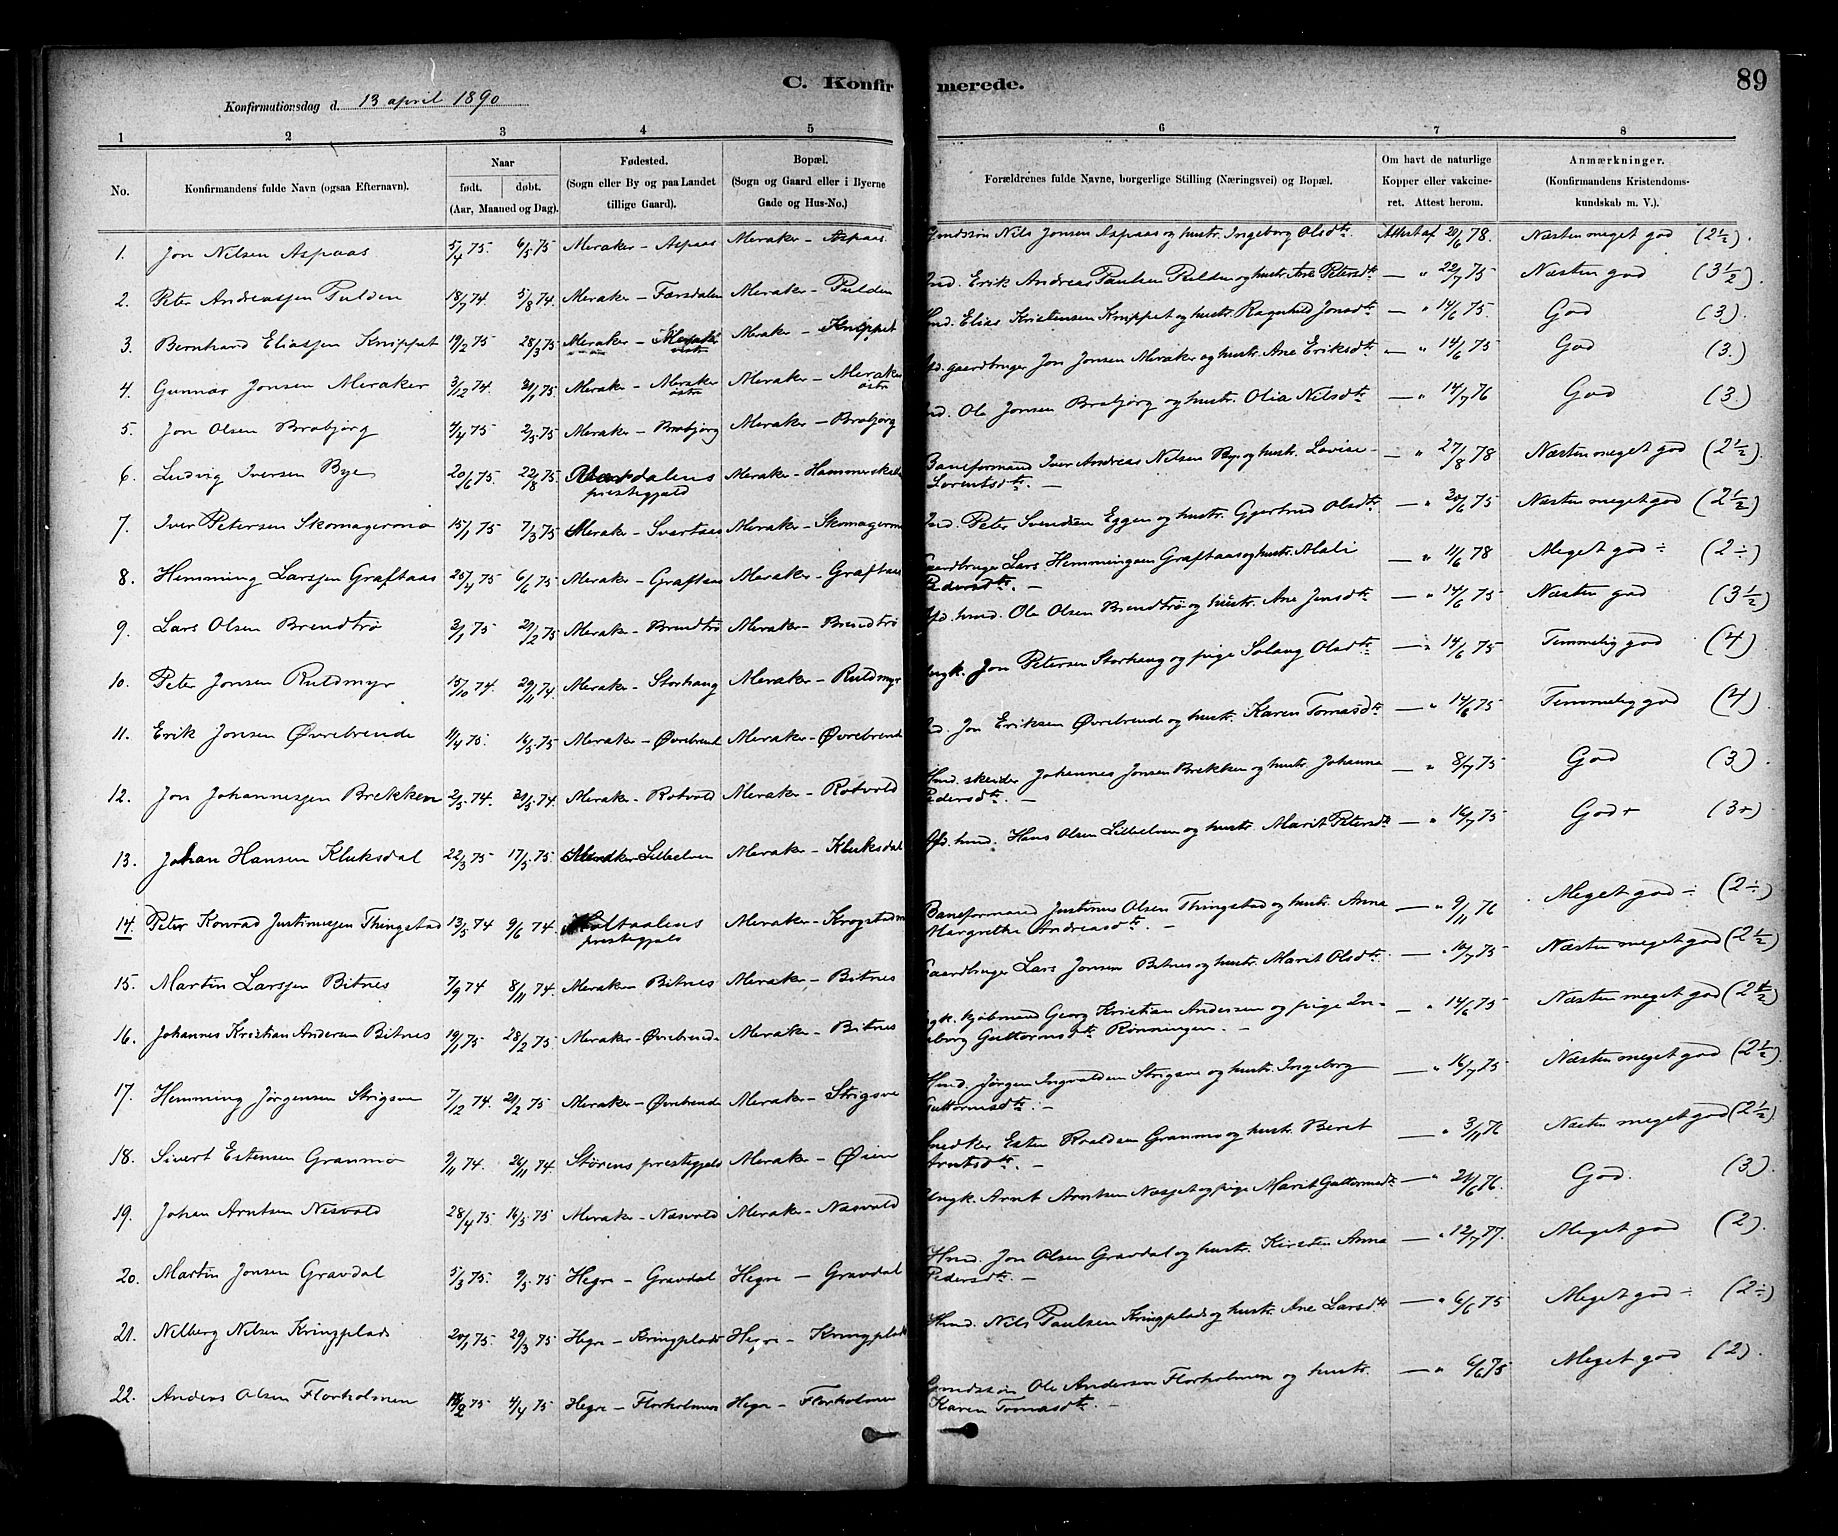 C. Konfirmerede. 89
Konfirmationsdag d. 13 april 1890
1 2 3 4 5 6 7 8
No. Konfirmandens fulde Navn (ogsaa Efternavn). Naar født. døbt. (Aar, Maaned og Dag). Fødested. (Sogn eller By og paa Landet tillige Gaard). Bopæl. (Sogn og Gaard eller i Byerne Gade og Hus-No.) Forældrenes fulde Navne, borgerlige Stilling (Næringsvei) og Bopæl. Om havt de naturlige Kopper eller vakcineret. Attest herom. Anmærkninger. (Konfirmandens Kristendomskundskab m. V.).
1. Jon Nilsen Aspaas 5/4 75. 6/5 75 Meraker - Aspaas Meraker - Aspaas Gmdssøn Nils Jonsen Aspaas og hustr. Ingeborg Olsdtr. Attest af 20/6 78. Næsten meget god (2½).
2. Peter Andreassen Pulden 18/7 74. 5/8 74. Meraker - Færsdalen Meraker - Pulden Erik Andreas Paulsen Pulden og hustr. Ane Petersdtr — " 22/7 75 Næsten god (3½).
3. Bernhard Eliassen Knippet 19/2 75 28/3 75 Meraker - Meraker vestre Meraker - Knippet Hmd. Elias Kristensen Knippet og hustr. Ragnhild Jonsdtr. — " 14/6 75. God (3).
4. Gunnar Jonsen Meraker 3/12 74. 31/1 75 Meraker - Meraker østre Meraker - Meraker østr gaardbruger Jon Jonsen Meraker og hustr. Ane Eriksdtr. — " 14/6 75 God (3.)
5. Jon Olsen Brabjørg 4/4 75 2/5 75 Meraker - Brabjørg Meraker - Brabjørg Ole Jonsen Brabjørg og hustr. Olia Nilsdtr — " 14/7 76 God (3.)
6. Ludvig Iversen Bye 20/6 75. 22/8 75 prestegjæld Meraker - Baneformand Iver Andreas Nilsen Bye og hustr. Lovise Lorentsdtr. - — " 27/8 78 Næsten meget god (2½).
7. Iver Petersen Skomagermo 15/1 75 7/3 75 Meraker - Svartaas Meraker - Skomagermo Peter Svendsen Eggen og hustr. Gjertrud Olsdtr. — " 20/6 75 Næsten meget god (2½)
8. Hemming Larssen Graftaas 25/4 75 6/6 75 Meraker - Graftaas Meraker - Graftaas Gaardbruger Lars Hemmingsen Graftaas og hustr. Mali Pedersdtr. — " 11/6 78 Meget god ÷ (2÷)
9. Lars Olsen Brendtrø 3/1 75 21/2 75 Meraker - Brendtrø Meraker - Brendtrø hmd. Ole Olsen Brendtrø og hustr. Ane Jensdtr. — " 14/6 75 Næsten god (3½)
10. Peter Jonsen Ruldmyr 15/10 74. 29/11 74. Meraker - Storhaug Meraker - Ruldmyr Ungk. Jon Petersen Storhaug og pige Solaug Olsdtr — " 14/6 75 Temmelig god (4)
11. Erik Jonsen Øvrebrende 11/4 75. 16/5 75 Meraker - Øvrebrende Meraker - Øvrebrende Jon Eriksen Øvrebrende og hustr. Karen Tomasdtr. — " 14/6 75 Temmelig god (4)
12. Jon Johannessen Brekken 2/5 74. 24/5 74. Meraker - Rotvold Meraker - Rotvold Hmd. Johannes Jonsen Brekken og hustr. Johanna Pedersdtr. — " 8/7 75 God (3)
13. Johan Hansen Kluksdal 22/3 75 17/5 75 Meraker Lillelven Meraker - Kluksdal hmd. Hans Olsen Lillelven og hustr. Marit Petersdtr — " 16/7 75 God + (3+)
14. Peter Konrad Justinussen Thingstad 13/5 74 9/6 74. Holtaalens prestegjæld Meraker - Krogstad Baneformand Justinus Olsen Thingstad og hustr. Anna Margrethe Andreasdtr. — " 9/11 76 Meget god ÷ (2÷)
15. Martin Larssen Bitnes 7/9 74 8/11 74. Meraker - Bitnes Meraker - Bitnes Gaardbruger Lars Jonsen Bitnes og hustr. Marit Olsdtr. — " 10/7 75 Næsten meget god (2½)
16. Johannes Kristian Andersen Bitnes 19/1 75 28/2 75. Meraker - Øvrebrende Meraker - Bitnes Georg Kristian Andersen og pige Ingeborg Guttormsdtr. Rønningen. — " 14/6 75 Næsten meget god (2½)
17. Hemming Jørgensen Strigsve 7/12 74. 21/2 75 Meraker - Øvrebrende Meraker - Strigsve Hmd. Jørgen Ingvaldsen Strigsve og hustr. Ingeborg Guttormsdtr. - — " 16/7 75 Næsten meget god (2½).
18. Sivert Estensen Granmo 9/11 74. 26/11 74. Størens prestegjeld Meraker - Øien Snedker Esten Roaldsen Granmo og hustr. Beret Arntsdtr. — " 3/11 76 Næsten meget god (2½)
19. Johan Arntsen Nesvold 28/4 75 16/5 75 Meraker - Næsvold Meraker - Næsvold Ungk. Arnt Arntsen og pige Marit Guttormsdtr. — " 21/6 76. God. (3).
20. Martin Jonsen Gravdal 5/3 75. 9/5 75 Hegre - Gravdal Hegre - Gravdal Hmd. Jon Olsen Gravdal og hustr. Kirsten Anna Pedersdtr. — " 12/7 77. Meget god (2).
21. Nelberg Nilsen Kringplads 20/1 75. 29/3 75 Hegre - Kringplads Hegre - Kringplads Hmd. Nils Paulsen Kringplads og hustr. Ane Larsdtr — " 6/6 75 Meget god ÷ (2÷)
22. Anders Olsen Florholmen 4/4 75 Hegre - Florholmen Hegre - Florholmen Gmdssøn Ole Anderson Florholmen og hustr. Karen Tomasdtr. — " 6/6 75 Meget god (2).